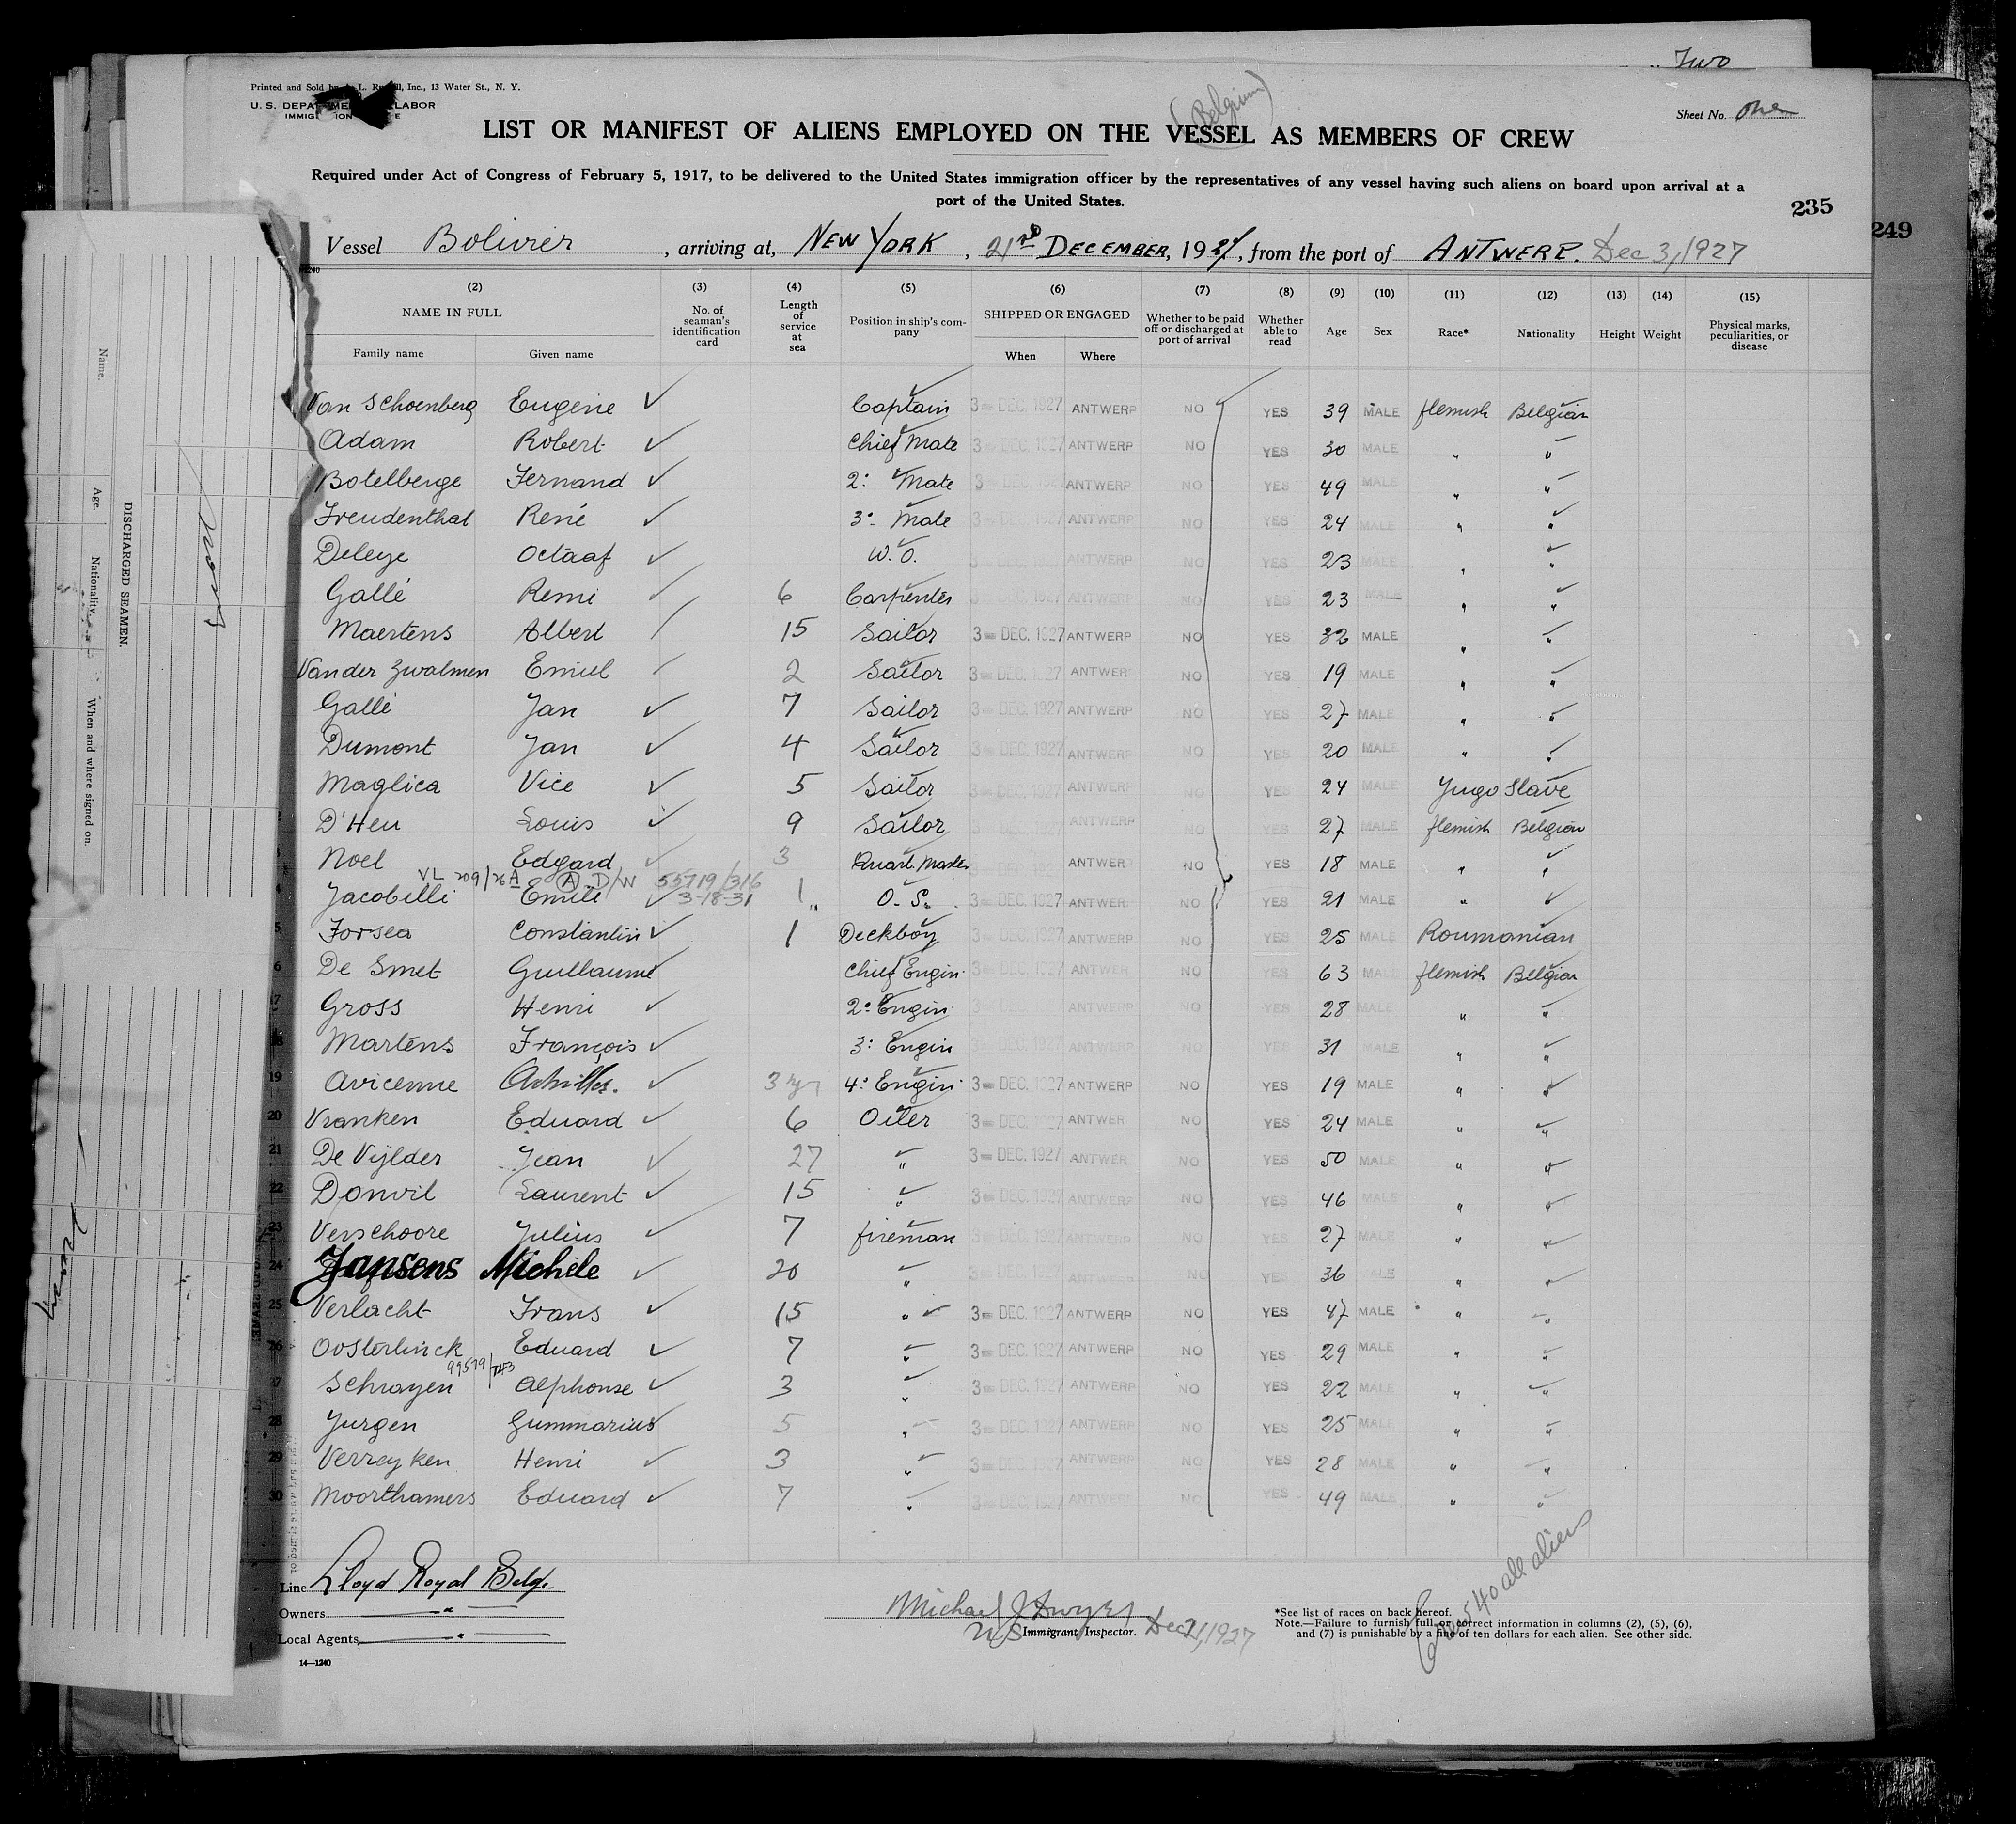 Two
Printed and Sold by L. Inc., 13 Water St., N. Y.
U. S. LABOR
(Belgium)
Sheet No. One
LIST OR MANIFEST OF ALIENS EMPLOYED ON THE VESSEL AS MEMBERS OF CREW
Required under Act of Congress of February 5, 1917, to be delivered to the United States immigration officer by the representatives of any vessel having such aliens on board upon arrival at a
port of the United States.
235
249
Vessel Bolivier, arriving at, NEW YORK, 21 DECEMBER, 1927, from the port of ANTWERP. Dec 3, 1927
(2) (3) (4) (5) (6) (7) (8) (9) (10) (11) (12) (13) (14) (15)
NAME IN FULL
Family name Given name
No. of seaman's identification card
Length of service at sea
Position in ship's company
SHIPPED OR ENGAGED
When Where
Whether to be paid off or discharged at port of arrival
Whether able to read
Age Sex Race* Nationality Height Weight
Physical marks, peculiarities, or disease
Van Schoenberg Eugene Captain 3 DEC. 1927 ANTWERP NO YES 39 MALE flemish Belgian
Adam Robert Chief Mate 3 DEC. 1927 ANTWERP NO YES 30 MALE " "
Botelberge Fernand 2: Mate 3 DEC. 1927 ANTWERP NO YES 49 MALE " "
Freudenthal René 3: Mate 3 DEC. 1927 ANTWERP NO YES 24 MALE " "
Deleye Octaaf W. O. ANTWERP NO YES 23 MALE " "
Gallé Remi 6 Carpenter ANTWERP NO YES 23 MALE " "
Maertens Albert 15 Sailor 3 DEC. 1927 ANTWERP NO YES 32 MALE " "
Van der Zwalmen Emiel 2 Sailor 3 DEC. 1927 ANTWERP NO YES 19 MALE " "
Gallé Jan 7 Sailor 3 DEC. 1927 ANTWERP NO YES 27 MALE " "
Dumont Jan 4 Sailor 3 DEC. 1927 ANTWERP NO YES 20 MALE " "
Maglica Vice 5 Sailor 3 DEC. 1927 ANTWERP NO YES 24 MALE Yugo Slave
D'Heu Louis 9 Sailor ANTWERP NO YES 27 MALE flemish Belgian
Noel Edgard 3 Quart. Master ANTWER NO YES 18 MALE " "
VL 209/26A (A) D/W 55719/316
3-18-31
Jacobelli Emile 1 " O. S. 3 DEC. 1927 ANTWER NO YES 21 MALE " "
5 Forsea Constantin 1 Deckboy 3 DEC. 1927 ANTWERP NO YES 25 MALE Roumanian
6 De Smet Guillaume Chief Engin. 3 DEC. 1927 ANTWER NO YES 63 MALE flemish Belgian
17 Gross Henri 2: Engin. 3 DEC. 1927 ANTWERP NO YES 28 MALE " "
18 Martens François 3: Engin 3 DEC. 1927 ANTWERP NO YES 31 MALE " "
19 Avicenne Achilles. 3 yr 4: Engin. 3 DEC. 1927 ANTWERP NO YES 19 MALE " "
20 Vranken Eduard 6 Oiler 3 DEC. 1927 ANTWER NO YES 24 MALE " "
21 De Vijlder Jean 27 " 3 DEC. 1927 ANTWER NO YES 50 MALE " "
22 Donvil Laurent 15 " 3 DEC. 1927 ANTWERP NO YES 46 MALE " "
23 Verschoore Julius 7 fireman 3 DEC. 1927 ANTWERP NO YES 27 MALE " "
24 Jansens Michele 20 " 3 DEC. 1927 ANTWERP NO YES 36 MALE " "
25 Verlacht Frans 15 " 3 DEC. 1927 ANTWERP NO YES 47 MALE " "
26 Oosterlinck Eduard 7 " 3 DEC. 1927 ANTWERP NO YES 29 MALE " "
99579/
27 Schrayen Alphonse 3 " 3 DEC. 1927 ANTWERP NO YES 22 MALE " "
28 Jurgen Gummarius 5 " 3 DEC. 1927 ANTWERP NO YES 25 MALE " "
29 Verreyken Henri 3 " 3 DEC. 1927 ANTWERP NO YES 28 MALE " "
30 Moorthamers Eduard 7 " 3 DEC. 1927 ANTWERP NO YES 49 MALE " "
Line Lloyd Royal Belge.
Owners "
Local Agents "
14—1240
Michael J Dwyer
US Immigrant Inspector. Dec 21, 1927
40 all aliens
*See list of races on back hereof.
Note.—Failure to furnish full or correct information in columns (2), (5), (6),
and (7) is punishable by a fine of ten dollars for each alien. See other side.
DISCHARGED SEAMEN.
Name. Age. Nationality. When and where signed on.